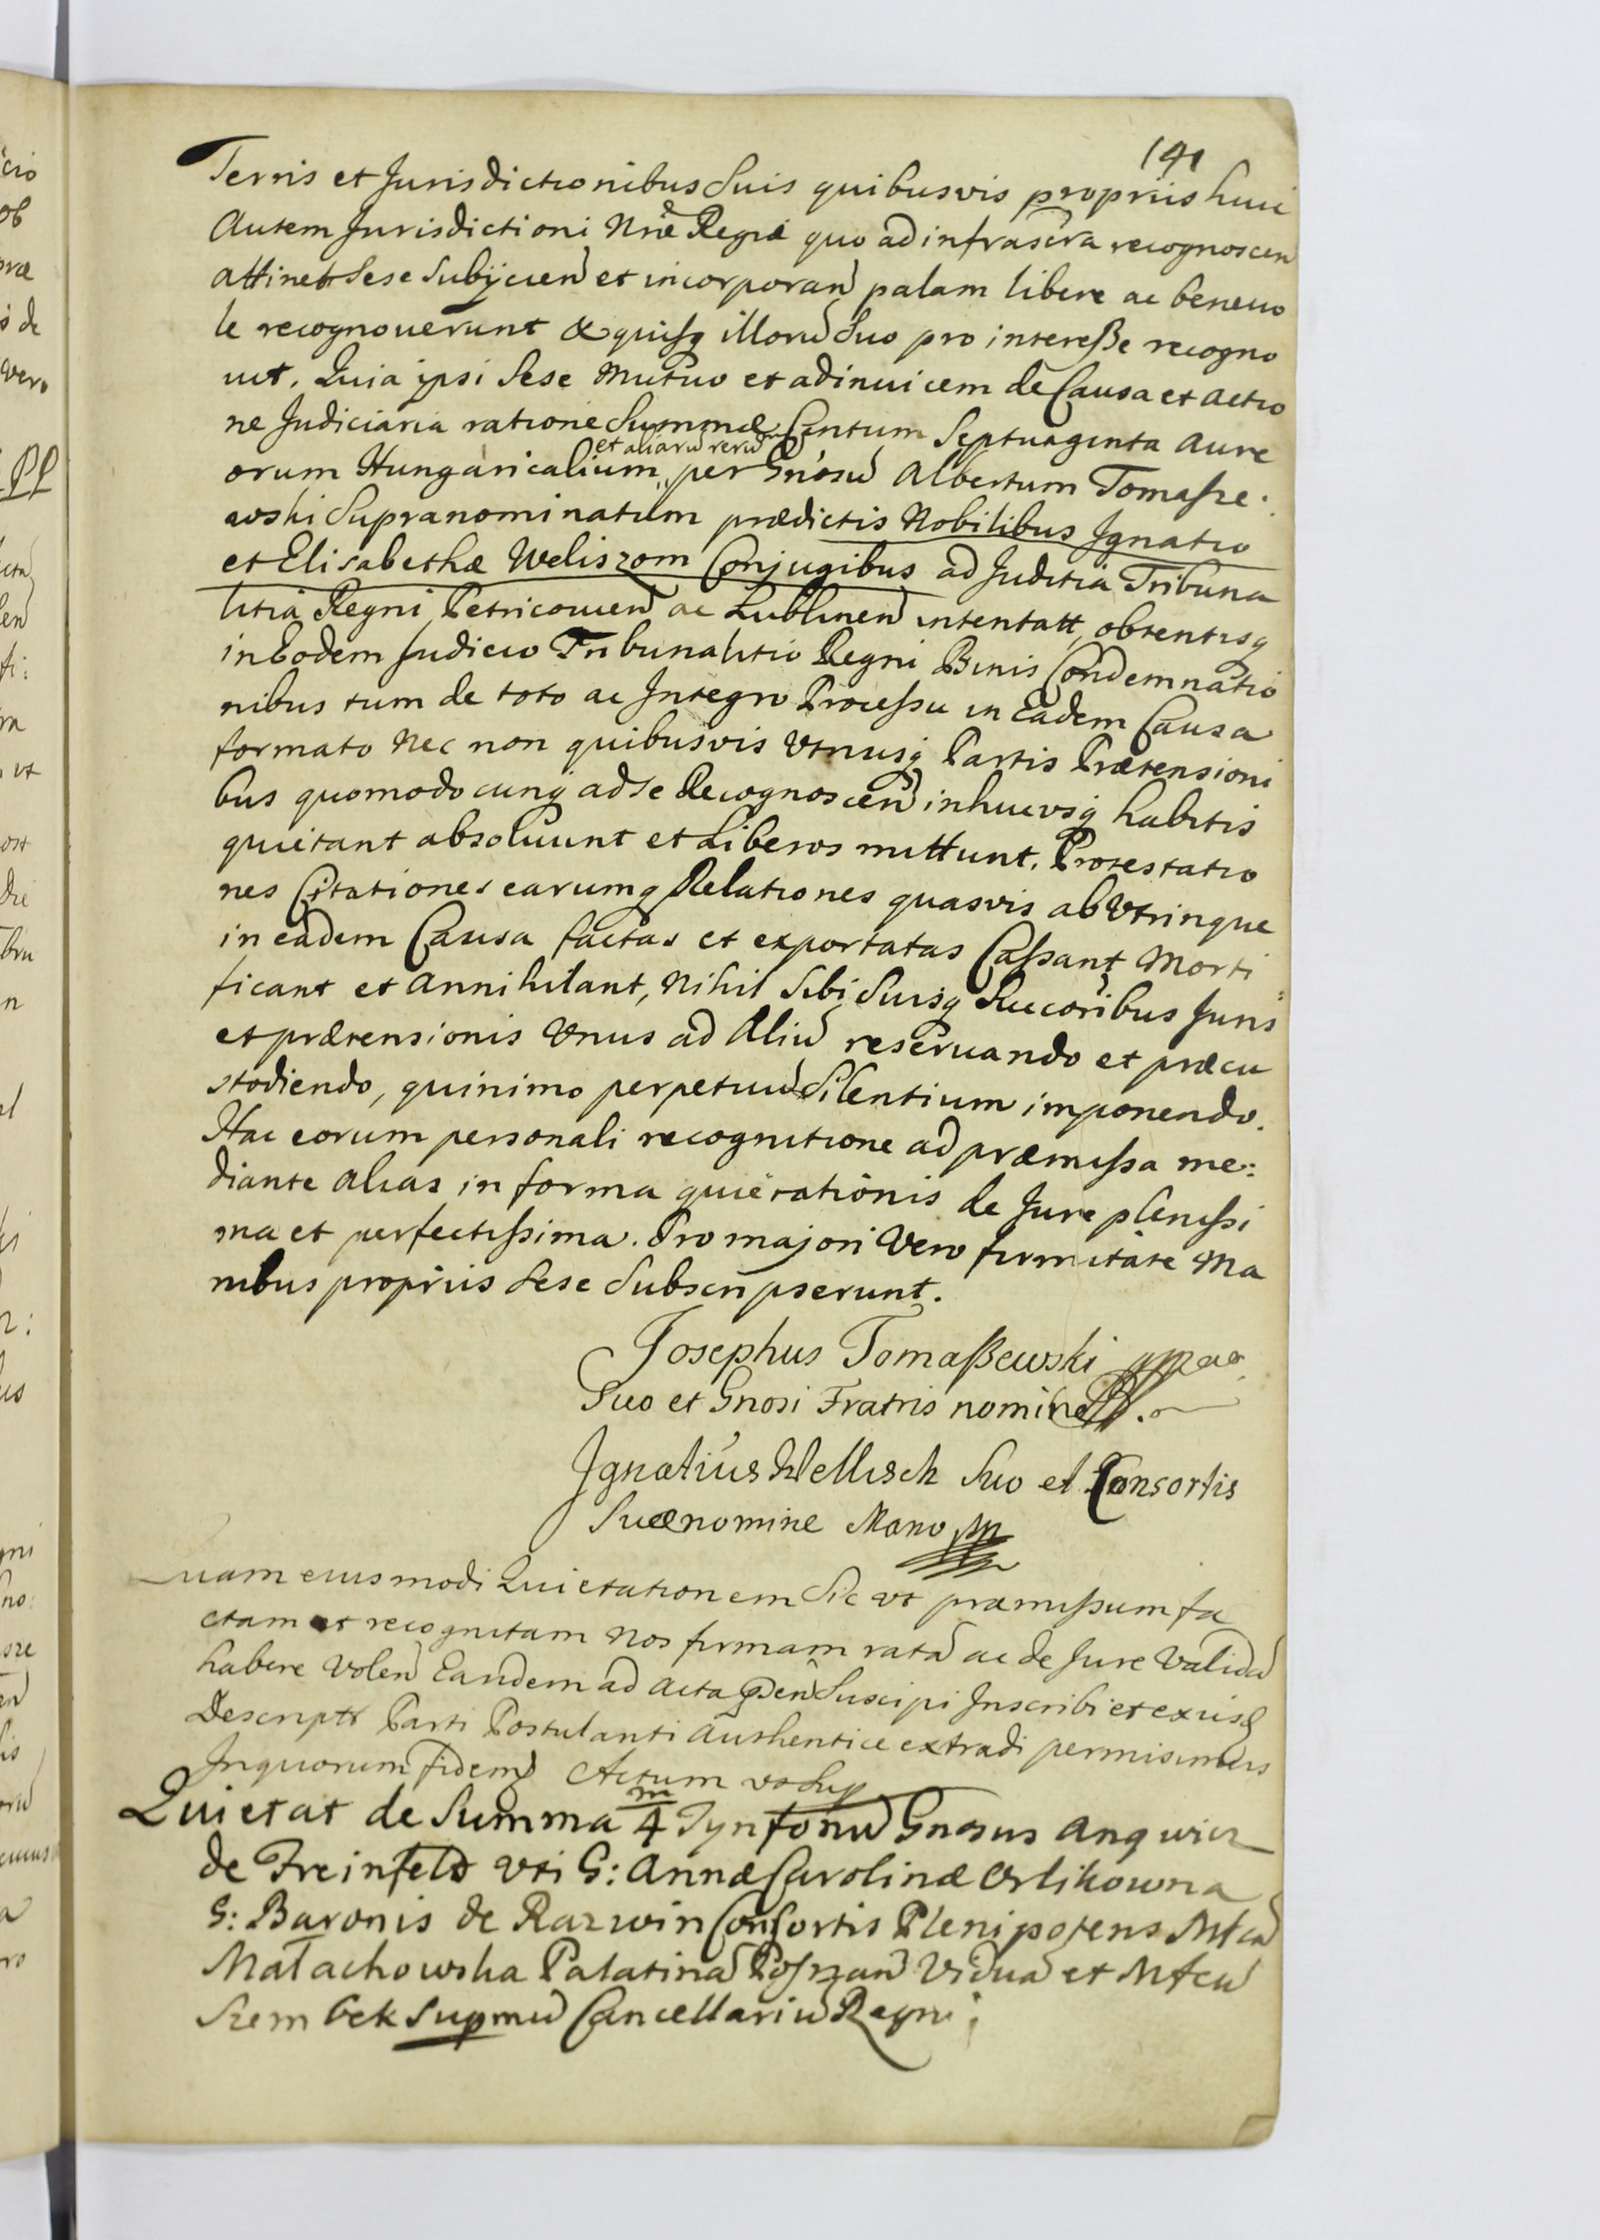 141
Terris et Jurisdictionibus Suis quibusvis proprijs huic
Autem Jurisdictioni Nrae Regiae quo ad infrascra recognoscen
attinet Sese Subijcien et incorporan palam libere ac beneuo
le recognouerunt & quisq illoru Suo pro interesse recogno
uit. Quia ipsi Sese Mutuo et adinuicem de Causa et actio
ne Judiciaria ratione Summae Centum Septuaginta Aure
et aliaru reru
orum Hungaricalium per Gnosu Albertum Tomasze:
wski Supranominatum praedictis Nobilibus Ignatio
et Elisabethae Weliszom Conjugibus ad Juditia Tribuna
litia Regni Petricouien ac Lublinen intentatt, obtentisq
in Eodem Judicio Tribunalitio Regni Binis Condemnatio
nibus tum de toto ac Integro Processu in Eadem Causa
formato Nec non quibusvis Vtriusq Partis Praetensioni
bus quomodocunq ad se Recognoscen inhucvsq habitis
quietant absoluunt et Liberos mittunt. Protestatio
nes Citationes earumq Relationes quasvis ab Vtrinque
in eadem Causa factas et exportatas Cassant Morti
ficant et Annihilant, Nihil Sibi Suisq Succoribus Juris
et praetensionis Vnus ad Aliu reseruando et praecu
stodiendo, quinimo perpetuu Silentium imponendo.
Hac eorum personali recognitione ad praemissa me:
diante alias in forma quietationis de Jure plenissi
ma et perfectissima. Pro majori Vero firmitate Ma
nibus proprijs Sese Subscripserunt.
Josephus Tomaßewski
Suo et Gnosi Fratris nomine
Ignatius Wellisch Suo et Consortis
Suae nomine Mano
Quam eiusmodi Quietationem Sic vt praemissum fa
ctam et recognitam Nos firmam rata ac de Jure Valida
habere Volen Eandem ad Acta Suscipi Inscribi et exijsq
Descriptt Parti Postulanti Authentice extradi permisimus
Inquorum fidem Actum vt Sup
m
Quietat de Summa 4 Tynforu Gnosus Anqwicz
de Freinfeld Vti G: Annae Carolinae Orlikowna
G: Baronis de Razwin Consortis Plenipotens Mfca
Małachowska Palatina Poſnan Vidua et Mfcu
Szembek Supmu Cancellariu Regni.